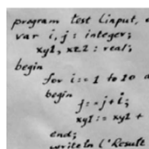 program test (input, 
var i, j : integer;
xy1, xz2 : real;
begin
for i := 1 to 10 
begin
j := j + i;
xy1 := xy1 +
end;
writeln ('Result